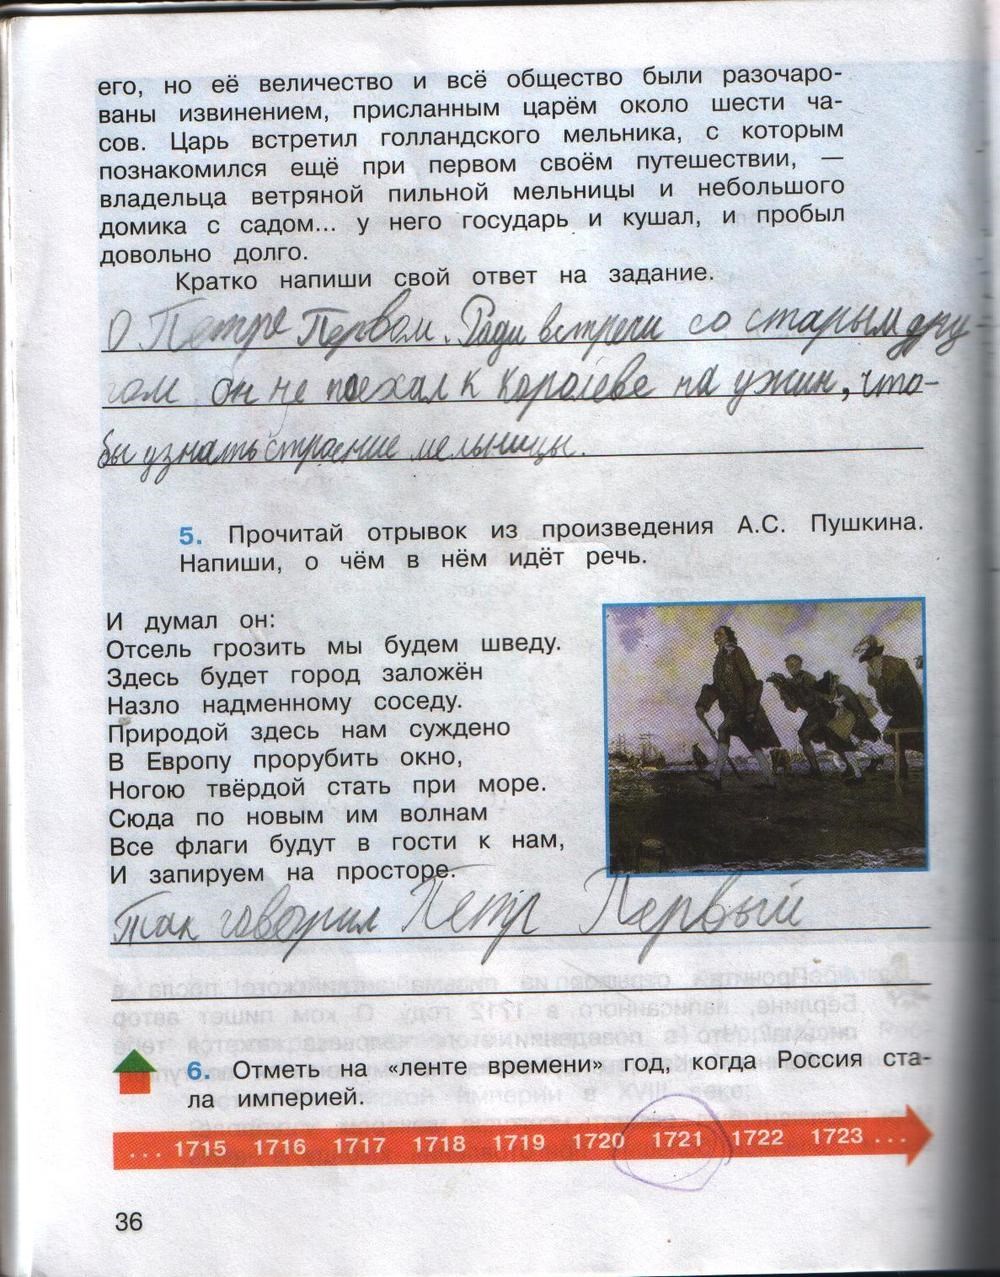 его, но её величество и всё общество были разочаро-
ваны извинением, присланным царём около шести ча-
сов. Царь встретил голландского мельника, с которым
познакомился ещё при первом своём путешествии, —
владельца ветряной пильной мельницы и небольшого
домика с садом... у него государь и кушал, и пробыл
довольно долго.
Кратко напиши свой ответ на задание.
О Петре Первом. Ради встречи со старым дру-
гом он не поехал к королеве на ужин, что-
бы узнать строение мельницы.
5. Прочитай отрывок из произведения А.С. Пушкина.
Напиши, о чём в нём идёт речь.
И думал он:
Отсель грозить мы будем шведу.
Здесь будет город заложён
Назло надменному соседу.
Природой здесь нам суждено
В Европу прорубить окно,
Ногою твёрдой стать при море.
Сюда по новым им волнам
Все флаги будут в гости к нам,
И запируем на просторе.
Так говорил Петр Первый
6. Отметь на «ленте времени» год, когда Россия ста-
ла империей.
... 1715 1716 1717 1718 1719 1720 1721 1722 1723 ...
36